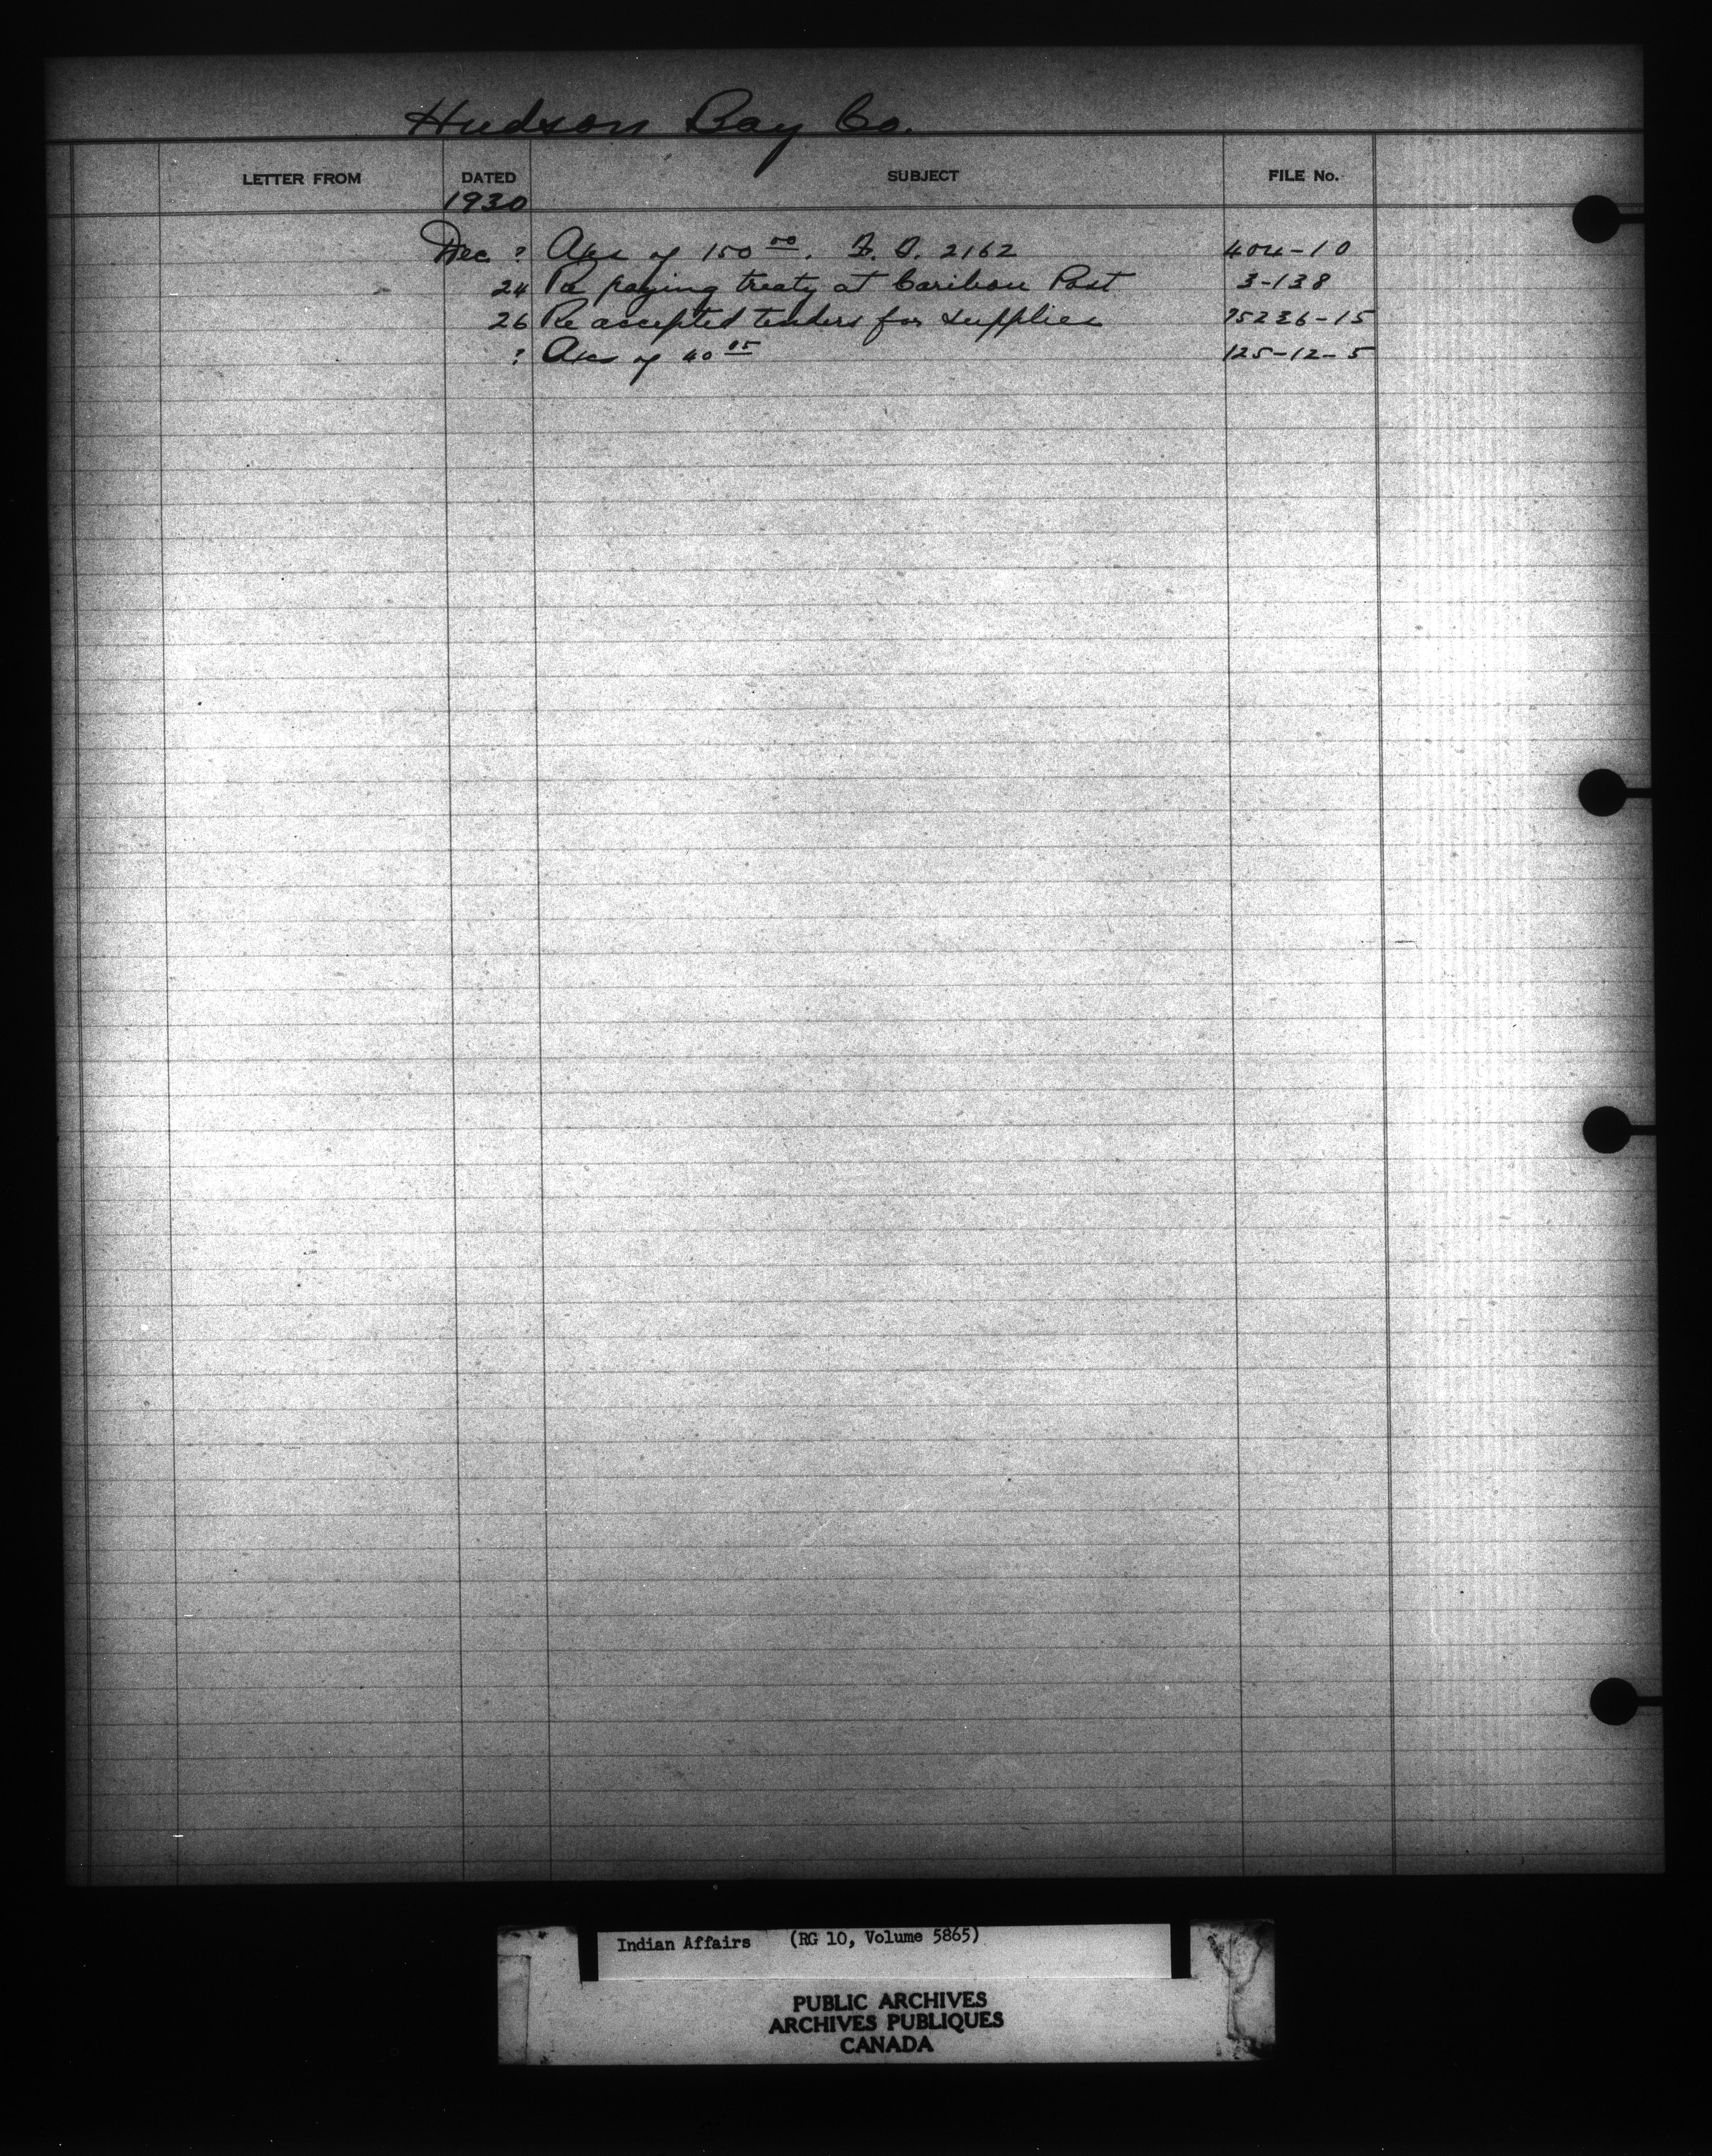 Hudson Bay Co.
LETTER FROM DATED SUBJECT FILE No.
1930
Dec ? Akn of 150 00. 2162 404-10
24 Re paying treaty at Caribou Post 3-138
26 Re accepted tenders for supplies 75236-15
? of 40 05 125-12-5
Indian Affairs (RG 10, Volume 5865)
PUBLIC ARCHIVES
ARCHIVES PUBLIQUES
CANADA